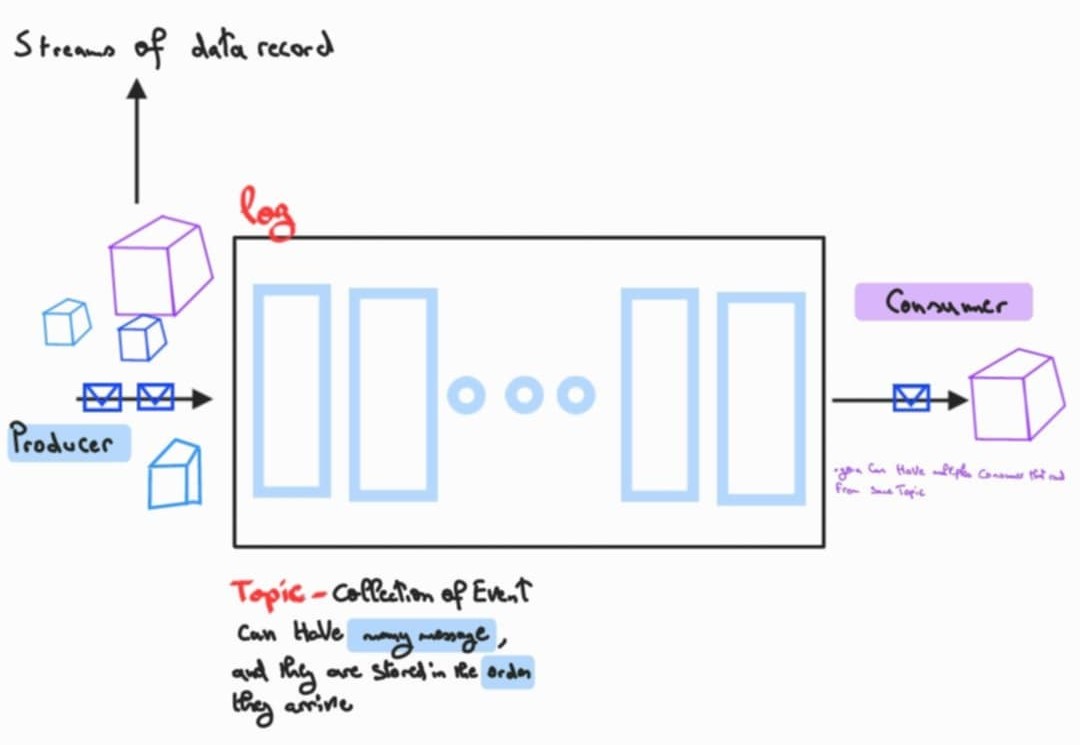 Streams of data record
log
Consumer
Producer
• you can Have multiple Consumer that read
From same Topic
Topic - Collection of Event
Can Have many message,
and they are stored in the order
they arrive